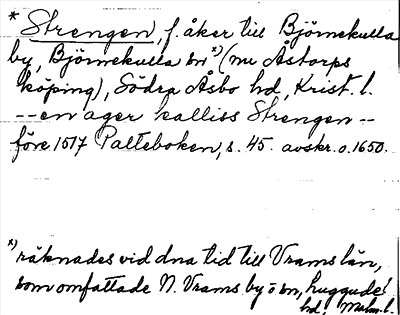 * Strengen, f. åker till Björnekulla
by, Björnekulla sn *) (nu Åstorps
köping), Södra Åsbo hd, Krist. l.
-- en ager kalliss Strengen --
före 1517 Palteboken, s. 45. avskr. o. 1650.
*) räknades vid dna tid till Vrams län,
som omfattade N. Vrams by o sn, Luggude
hd, Malm. l.